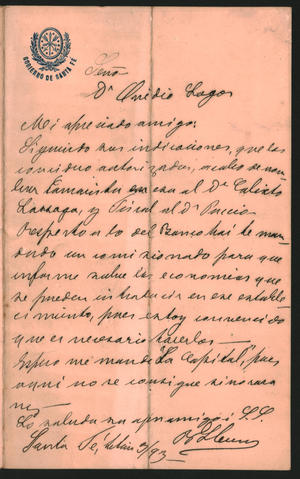 GOBIERNO DE SANTA FÉ
Señor
Dn Ovidio Lagos
Mi apreciado amigo:
Siguiendo sus indicaciones, que las
considero autorizadas, acabo de nom-
brar Camarista al Dr Calixto
Lassaga, y Fiscal al Dr
Respecto a lo del Banco hai he man-
dado un comisionado para que
informe sobre las economías que
se pueden introducir en ese estable-
cimiento, pues estoy convencido
que es necesario hacerlas.
Espero me mande "La Capital", pues
aquí no se consigue sino rara
Lo saluda su afmo amigo i S.S.
Santa Fé, 3/93